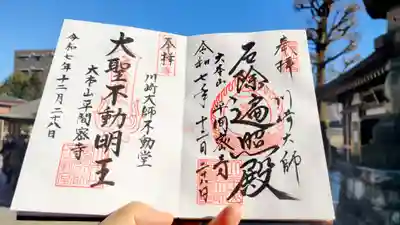 奉拝
川崎大師
厄除遍照殿
大本山平間寺
令和七年十二月二十八日
奉拝
川崎大師不動堂
大聖不動明王
大本山平間寺
令和七年十二月二十八日